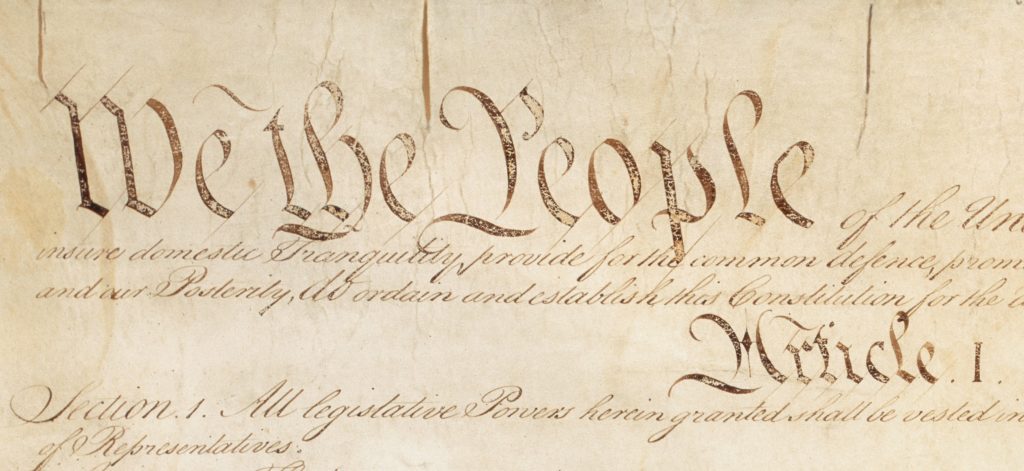 We the People of the Un
insure domestic Tranquility, provide for the common defence, prom
and our Posterity, do ordain and establish this Constitution for the
Article. I.
Section. 1. All legislative Powers herein granted shall be vested in
of Representatives.